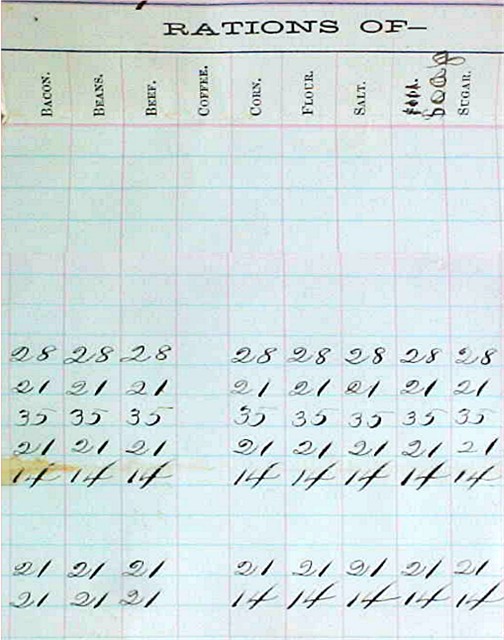 RATIONS OF–
BACON. BEANS. BEEF. COFFEE. CORN. FLOUR. SALT. Soap SUGAR.
28 28 28 28 28 28 28 28
21 21 21 21 21 21 21 21
35 35 35 35 35 35 35 35
21 21 21 21 21 21 21 21
14 14 14 14 14 14 14 14
21 21 21 21 21 21 21 21
21 21 21 14 14 14 14 14